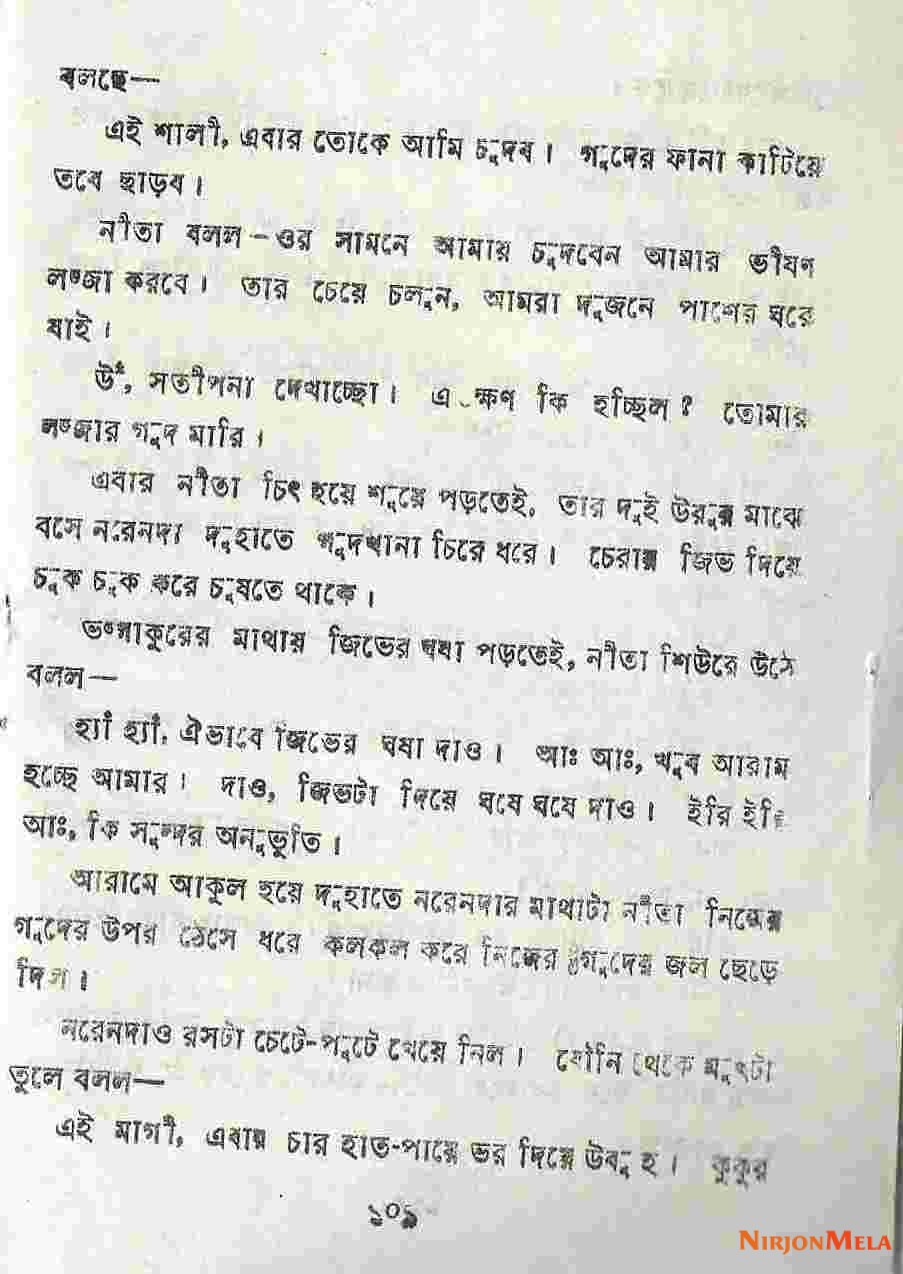 বলছে—
এই শালী, এবার তোকে আমি চুদব। গুদের ফানা কাটিয়ে
তবে ছাড়ব।
নীতা বলল – ওর সামনে আমায় চুদবেন আমার ভীষণ
লজ্জা করবে। তার চেয়ে চলুন, আমরা দুজনে পাশের ঘরে
যাই।
উঁ, সতীপনা দেখাচ্ছো। এ ক্ষণ কি হচ্ছিল? তোমার
লজ্জার গুদ মারি।
এবার নীতা চিৎ হয়ে শুয়ে পড়তেই, তার দুই উরুর মাঝে
বসে নরেনদা দুহাতে গুদখানা চিরে ধরে। চেরায় জিভ দিয়ে
চুক চুক করে চুষতে থাকে।
ভগ্নাকুরের মাথায় জিভের ঘষা পড়তেই, নীতা শিউরে উঠে
বলল—
হ্যাঁ হ্যাঁ, ঐভাবে জিভের ঘষা দাও। আঃ আঃ, খুব আরাম
হচ্ছে আমার। দাও, জিভটা দিয়ে ঘষে ঘষে দাও। ইরি ইরি
আঃ, কি সুন্দর অনুভুতি।
আরামে আকুল হয়ে দুহাতে নরেনদার মাথাটা নীতা নিজের
গুদের উপর ঠেসে ধরে কলকল করে নিজের গুদের জল ছেড়ে
দিল।
নরেনদাও রসটা চেটে-পুটে খেয়ে নিল। যৌনি থেকে মুখটা
তুলে বলল—
এই মাগী, এবার চার হাত-পায়ে ভর দিয়ে উবু হ। কুকুর
১০৯
NIRJONMELA